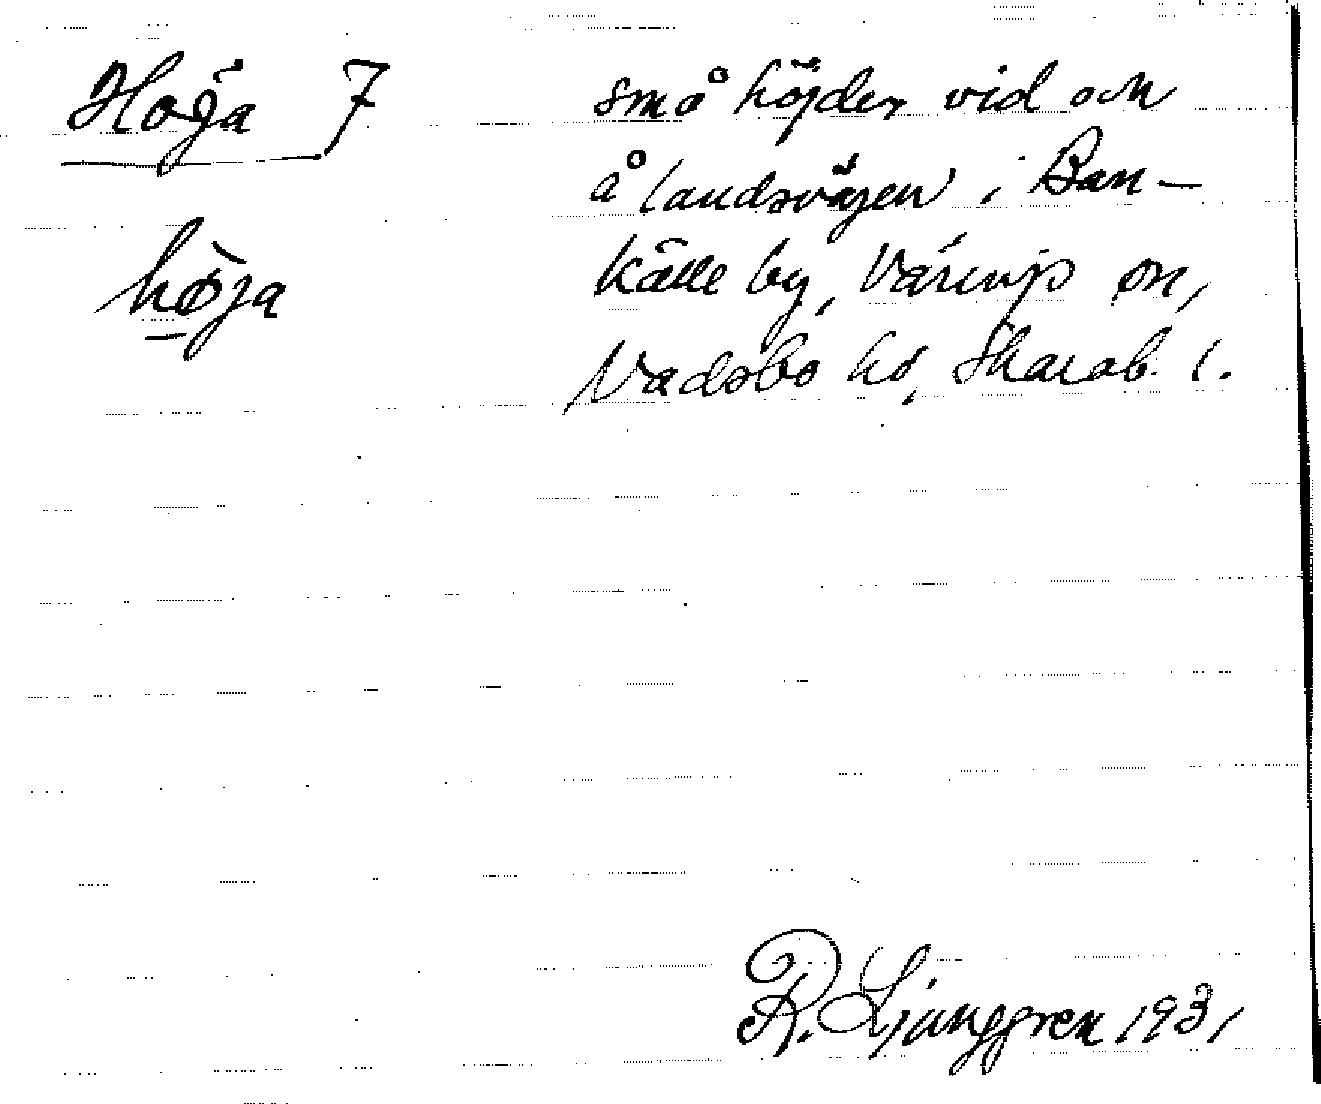 Höja 7
höja
små höjder vid och
å landsvägen i Ban-
källe by, Värings sn,
Vadsbo hd, Skarab. l.
R. Ljunggren 1931